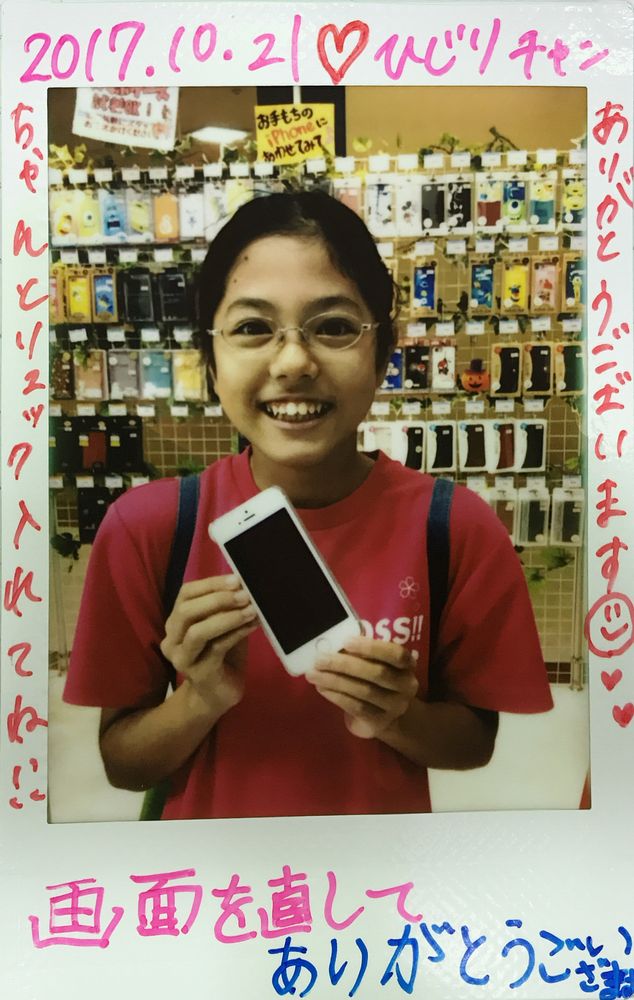 2017.10.21♡ひじりチャン
ちゃんとリュック入れてね!!
ありがとうございます☺♥♥
お手もちの
iPhoneに
あわせてみて
OSS!!
画面を直して
ありがとうござい